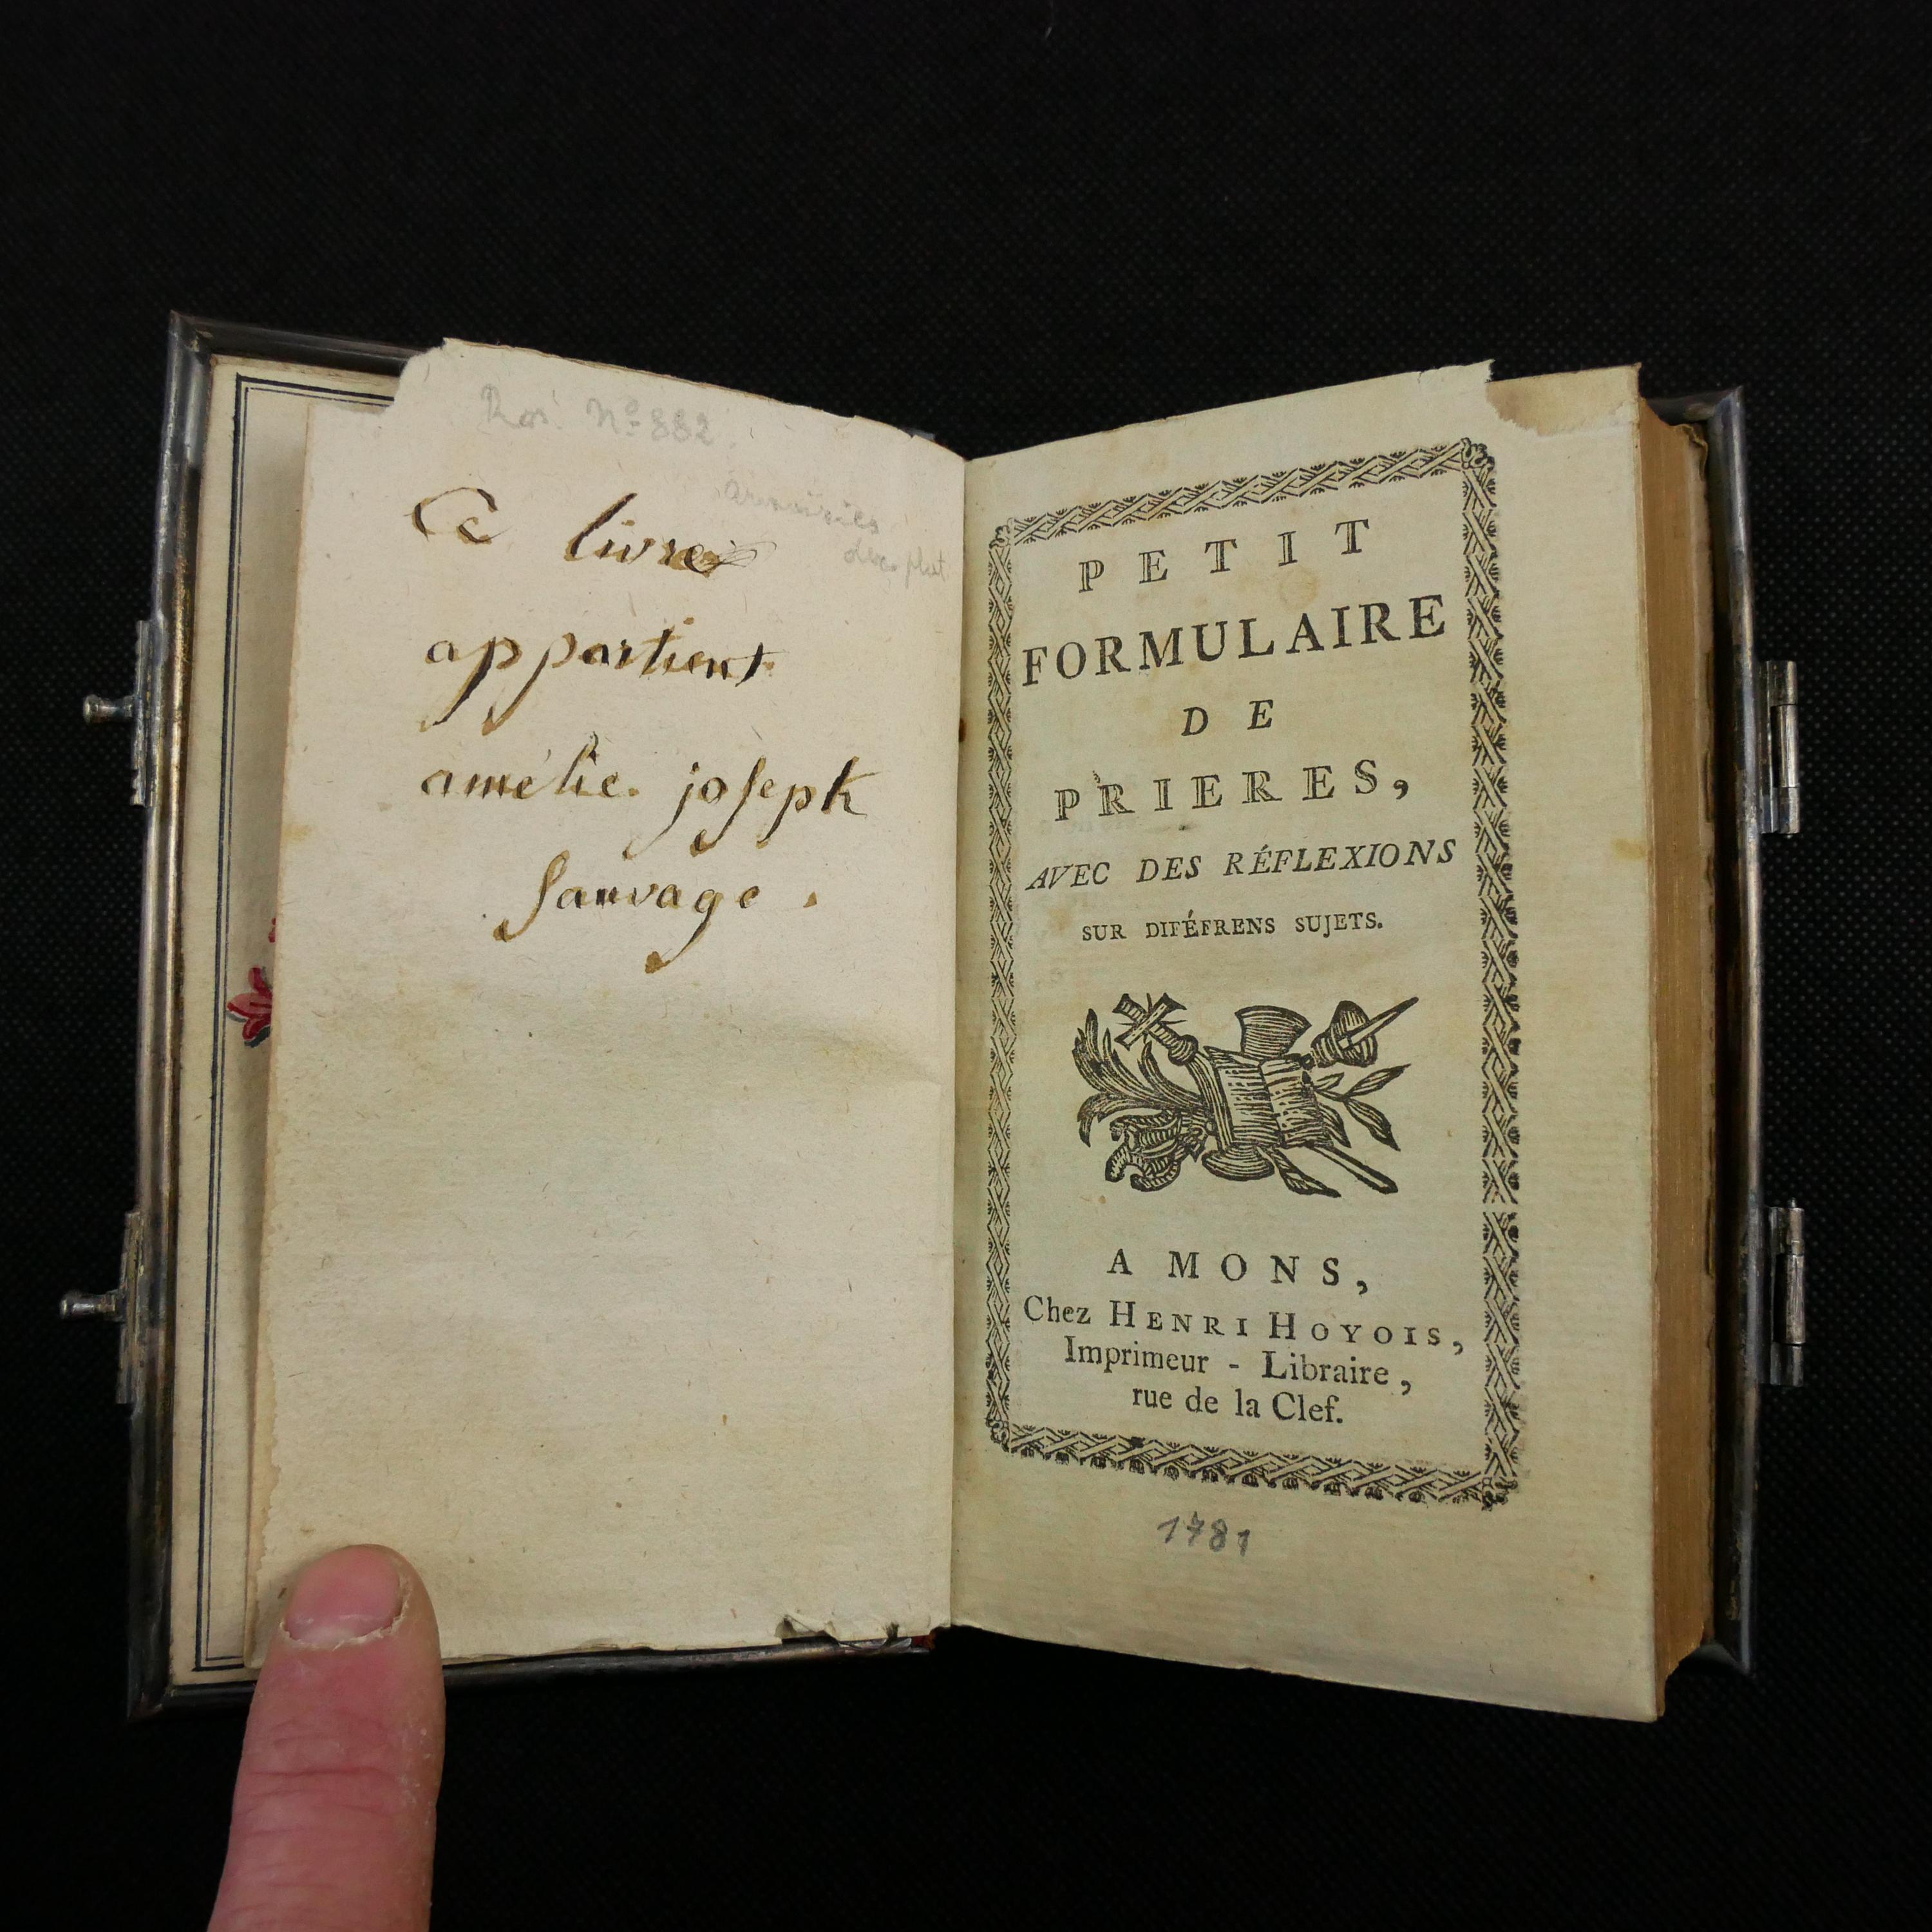 Ros. Nº 882
armoiries
Ce livre
appartient
amélie. joseph
Sauvage.
PETIT
FORMULAIRE
DE
PRIERES,
AVEC DES RÉFLEXIONS
SUR DIFÉFRENS SUJETS.
A MONS,
Chez HENRI HOYOIS,
Imprimeur - Libraire,
rue de la Clef.
1781